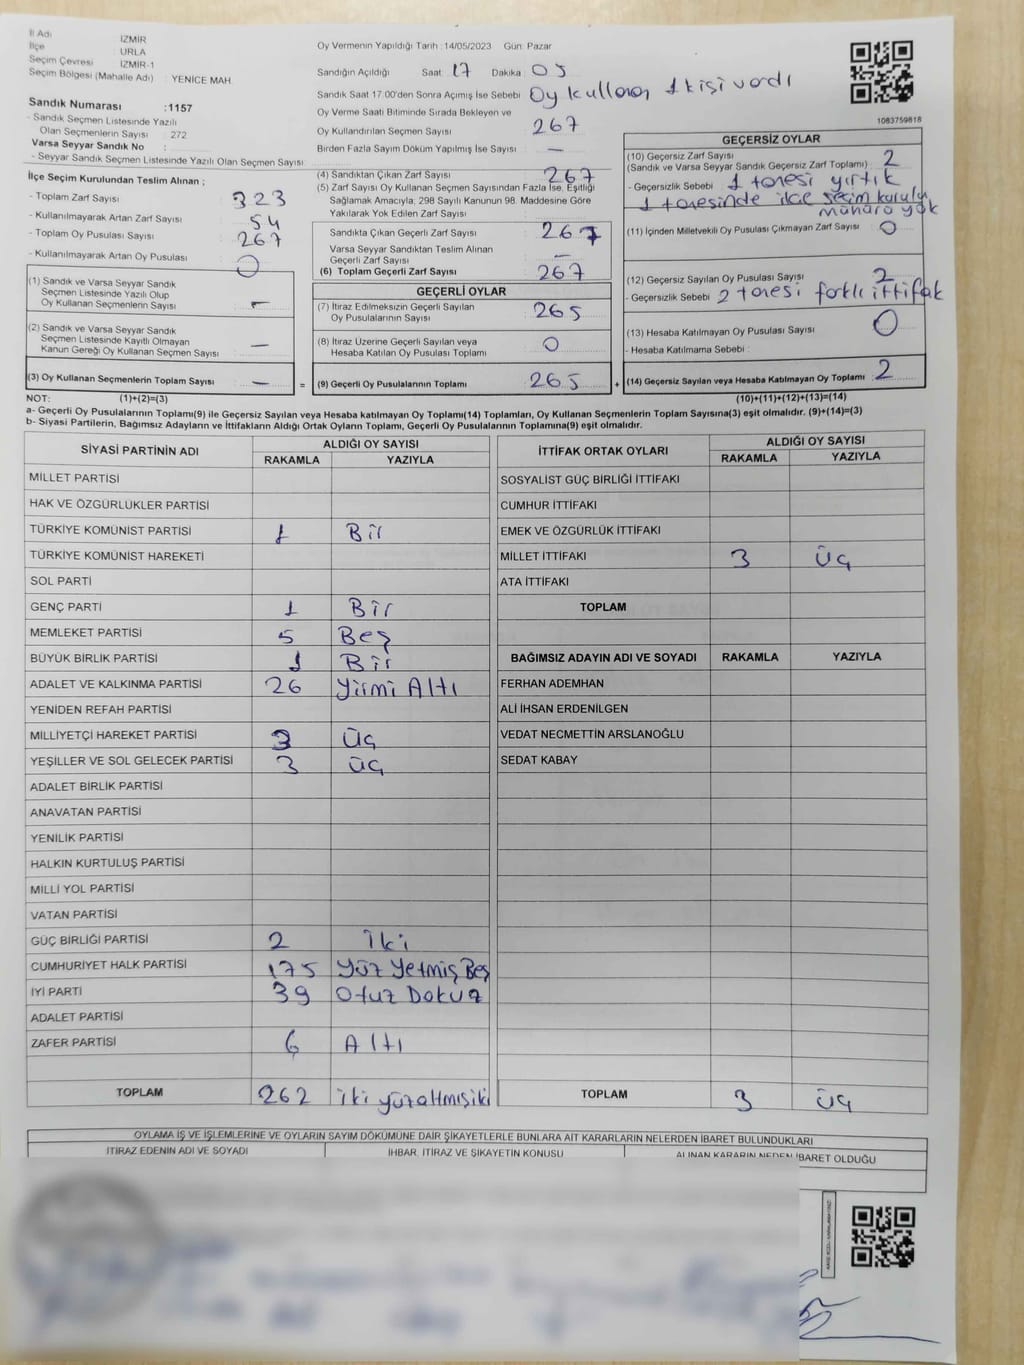 İl Adı İZMİR
İlçe URLA
Seçim Çevresi İZMİR-1
Seçim Bölgesi (Mahalle Adı) : YENİCE MAH.
Sandık Numarası :1157
- Sandık Seçmen Listesinde Yazılı
Olan Seçmenlerin Sayısı : 272
Varsa Seyyar Sandık No :
- Seyyar Sandık Seçmen Listesinde Yazılı Olan Seçmen Sayısı :
Oy Vermenin Yapıldığı Tarih :14/05/2023 Gün: Pazar
Sandığın Açıldığı Saat: 17 Dakika 05
Sandık Saat 17.00'den Sonra Açımış İse Sebebi Oy kullanan 1 kişi vardı
Oy Verme Saati Bitiminde Sırada Bekleyen ve
Oy Kullandırılan Seçmen Sayısı 267
Birden Fazla Sayım Döküm Yapılmış İse Sayısı : —
1083759818
İlçe Seçim Kurulundan Teslim Alınan ;
- Toplam Zarf Sayısı : 323
- Kullanılmayarak Artan Zarf Sayısı : 54
- Toplam Oy Pusulası Sayısı : 267
- Kullanılmayarak Artan Oy Pusulası : 0
(1) Sandık ve Varsa Seyyar Sandık
Seçmen Listesinde Yazılı Olup
Oy Kullanan Seçmenlerin Sayısı : —
(2) Sandık ve Varsa Seyyar Sandık
Seçmen Listesinde Kayıtlı Olmayan
Kanun Gereği Oy Kullanan Seçmen Sayısı : —
(3) Oy Kullanan Seçmenlerin Toplam Sayısı : — =
(4) Sandıktan Çıkan Zarf Sayısı : 267
(5) Zarf Sayısı Oy Kullanan Seçmen Sayısından Fazla İse, Eşitliği
Sağlamak Amacıyla; 298 Sayılı Kanunun 98. Maddesine Göre
Yakılarak Yok Edilen Zarf Sayısı :
Sandıkta Çıkan Geçerli Zarf Sayısı : 267
Varsa Seyyar Sandıktan Teslim Alınan
Geçerli Zarf Sayısı : —
(6) Toplam Geçerli Zarf Sayısı : 267
GEÇERLİ OYLAR
(7) İtiraz Edilmeksizin Geçerli Sayılan
Oy Pusulalarının Sayısı : 265
(8) İtiraz Üzerine Geçerli Sayılan veya
Hesaba Katılan Oy Pusulası Toplamı : 0
(9) Geçerli Oy Pusulalarının Toplamı : 265 +
GEÇERSİZ OYLAR
(10) Geçersiz Zarf Sayısı
(Sandık ve Varsa Seyyar Sandık Geçersiz Zarf Toplamı) : 2
- Geçersizlik Sebebi : 1 tanesi yırtık
1 tanesinde ilçe seçim kurulu
mührü yok
(11) İçinden Milletvekili Oy Pusulası Çıkmayan Zarf Sayısı : 0
(12) Geçersiz Sayılan Oy Pusulası Sayısı : 2
- Geçersizlik Sebebi : 2 tanesi farklı ittifak
(13) Hesaba Katılmayan Oy Pusulası Sayısı : 0
- Hesaba Katılmama Sebebi :
(14) Geçersiz Sayılan veya Hesaba Katılmayan Oy Toplamı : 2
NOT: (1)+(2)=(3) (10)+(11)+(12)+(13)=(14)
a- Geçerli Oy Pusulalarının Toplamı(9) ile Geçersiz Sayılan veya Hesaba katılmayan Oy Toplamı(14) Toplamları, Oy Kullanan Seçmenlerin Toplam Sayısına(3) eşit olmalıdır. (9)+(14)=(3)
b- Siyasi Partilerin, Bağımsız Adayların ve İttifakların Aldığı Ortak Oyların Toplamı, Geçerli Oy Pusulalarının Toplamına(9) eşit olmalıdır.
SİYASİ PARTİNİN ADI ALDIĞI OY SAYISI
RAKAMLA YAZIYLA
MİLLET PARTİSİ
HAK VE ÖZGÜRLÜKLER PARTİSİ
TÜRKİYE KOMÜNİST PARTİSİ 1 Bir
TÜRKİYE KOMÜNİST HAREKETİ
SOL PARTİ
GENÇ PARTİ 1 Bir
MEMLEKET PARTİSİ 5 Beş
BÜYÜK BİRLİK PARTİSİ 1 Bir
ADALET VE KALKINMA PARTİSİ 26 Yirmi Altı
YENİDEN REFAH PARTİSİ
MİLLİYETÇİ HAREKET PARTİSİ 3 Üç
YEŞİLLER VE SOL GELECEK PARTİSİ 3 Üç
ADALET BİRLİK PARTİSİ
ANAVATAN PARTİSİ
YENİLİK PARTİSİ
HALKIN KURTULUŞ PARTİSİ
MİLLİ YOL PARTİSİ
VATAN PARTİSİ
GÜÇ BİRLİĞİ PARTİSİ 2 İki
CUMHURİYET HALK PARTİSİ 175 Yüz Yetmiş Beş
İYİ PARTİ 39 Otuz Dokuz
ADALET PARTİSİ
ZAFER PARTİSİ 6 Altı
TOPLAM 262 İki yüzaltmışiki
İTTİFAK ORTAK OYLARI ALDIĞI OY SAYISI
RAKAMLA YAZIYLA
SOSYALİST GÜÇ BİRLİĞİ İTTİFAKI
CUMHUR İTTİFAKI
EMEK VE ÖZGÜRLÜK İTTİFAKI
MİLLET İTTİFAKI 3 Üç
ATA İTTİFAKI
TOPLAM
BAĞIMSIZ ADAYIN ADI VE SOYADI RAKAMLA YAZIYLA
FERHAN ADEMHAN
ALİ İHSAN ERDENİLGEN
VEDAT NECMETTİN ARSLANOĞLU
SEDAT KABAY
TOPLAM 3 Üç
OYLAMA İŞ VE İŞLEMLERİNE VE OYLARIN SAYIM DÖKÜMÜNE DAİR ŞİKAYETLERLE BUNLARA AİT KARARLARIN NELERDEN İBARET BULUNDUKLARI
İTİRAZ EDENİN ADI VE SOYADI İHBAR, İTİRAZ VE ŞİKAYETİN KONUSU ALINAN KARARIN NEDEN İBARET OLDUĞU